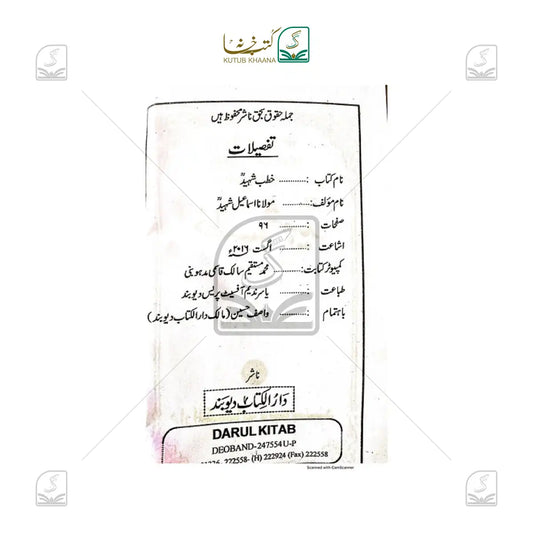 کتب خانہ
KUTUB KHAANA
جملہ حقوق بحق ناشر محفوظ ہیں
تفصیلات
نام کتاب : ........... خطب شہیدؒ
نام مؤلف : ........... مولانا اسماعیل شہیدؒ
صفحات : ........... ۹۶
اشاعت : ........... اگست ۲۰۱۶ء
کمپیوٹر کتابت : ........... محمد مستقیم سالک قاسمی مدہوبنی
طباعت : ........... یاسر ندیم آفسیٹ پریس دیوبند
باہتمام : ........... واصف حسین (مالک دارالکتاب دیوبند)
ناشر
دارالکتاب دیوبند
DARUL KITAB
DEOBAND-247554 U-P
222558- (H) 222924 (Fax) 222558
Scanned with CamScanner